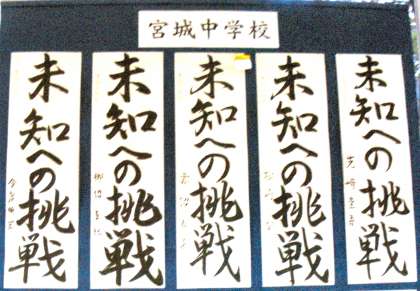 宮城中学校
未知への挑戦
未知への挑戦
未知への挑戦
未知への挑戦
未知への挑戦